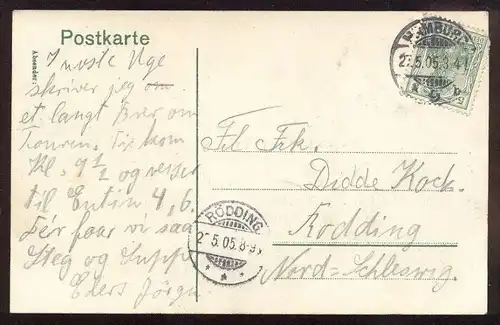 Postkarte
Absender:
I næste Uge
skriver jeg om
et langt Brev om
Touren. Vi kom
Kl. 9 1/2 og rejser
til Eutin 4,6.
Før faar vi saa
Steg og Suppe
Eders Jörgen
HAMBURG
5.05.8-9
Frl. Frk.
Didde Kock.
Rödding
Nord-Schleswig.
RÖDDING
5.05.8-9V